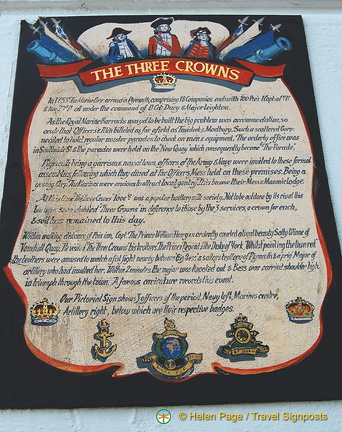 THE THREE CROWNS
In 1755 The Marines arrived in Plymouth, comprising 18 Companies each with 100 Pvts. 1 Capt. of 1st
& two 2nd Lt. all under the command of Lt. Col. Dury & Major Leighton.
As the Royal Marine Barracks was yet to be built the big problem was accommodation, so
and that Officers & Men billeted as far afield as Tavistock & Modbury. Such a scattered force
needed to hold regular muster parades to check on men & equipment. The orderly office was
in Southside St. & the parades were held on the New Quay which consequently became "The Parade".
Plymouth being a garrison & naval town, officers of the Army & Navy were invited to these formal
assemblies, following which they dined at The Officers Mess held on these premises. Being a
the Marines were anxious to attract local gentry. This became their Mess & Masonic lodge.
At this time Wallace Gunn's was a popular hostlery with society. Not to be outdone by its rival this
hostlery soon dubbed Three Crowns in deference to those by the 3 services, a crown for each,
& so it has remained to this day.
Within walking distance of this inn, Capt. The Prince William Henry ardently courted a local beauty Sally Winne of
Vauxhall Quay. He used The Three Crowns his brothers, The Prince Regent & The Duke of York. Whilst painting the town red
the brothers were amused to watch a fist fight nearby between Big Bess, a sailors trollope of Plymouth & a prig Major of
artillery who had insulted her. Within 2 minutes the major was knocked out & Bess over carried shoulder high
in triumph through the town. A famous caricature records this event.
Our Pictorial Sign shows 3 officers of the period. Navy left, Marines centre,
Artillery right, below which are their respective badges.
© Helen Page / Travel Signposts